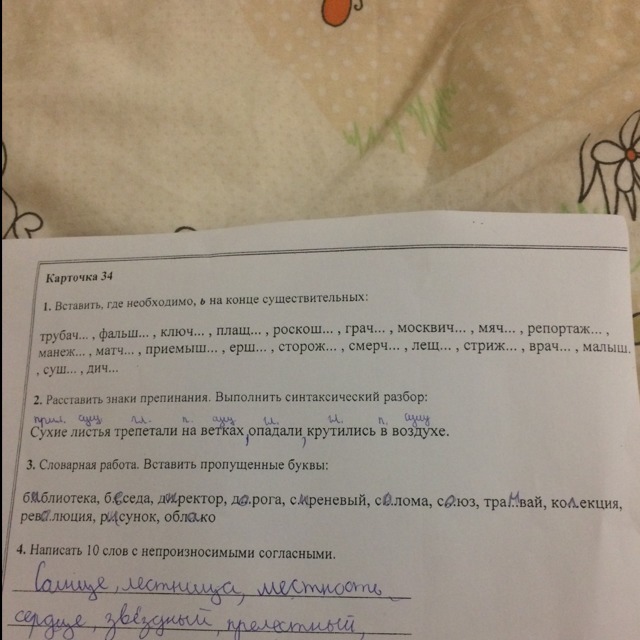 Карточка 34
1. Вставить, где необходимо, ь на конце существительных:
трубач... , фальш... , ключ... , плащ... , роскош... , грач... , москвич... , мяч... , репортаж... ,
манеж... , матч... , приемыш... , ерш... , сторож... , смерч... , лещ... , стриж... , врач... , малыш.
, суш... , дич...
2. Расставить знаки препинания. Выполнить синтаксический разбор:
прил. сущ. гл. п. сущ. гл. гл. п. сущ
Сухие листья трепетали на ветках, опадали, крутились в воздухе.
3. Словарная работа. Вставить пропущенные буквы:
библиотека, беседа, директор, дорога, сиреневый, солома, союз, трамвай, коллекция,
революция, рисунок, облако
4. Написать 10 слов с непроизносимыми согласными.
Солнце, лестница, местность
сердце, звёздный, прелестный,